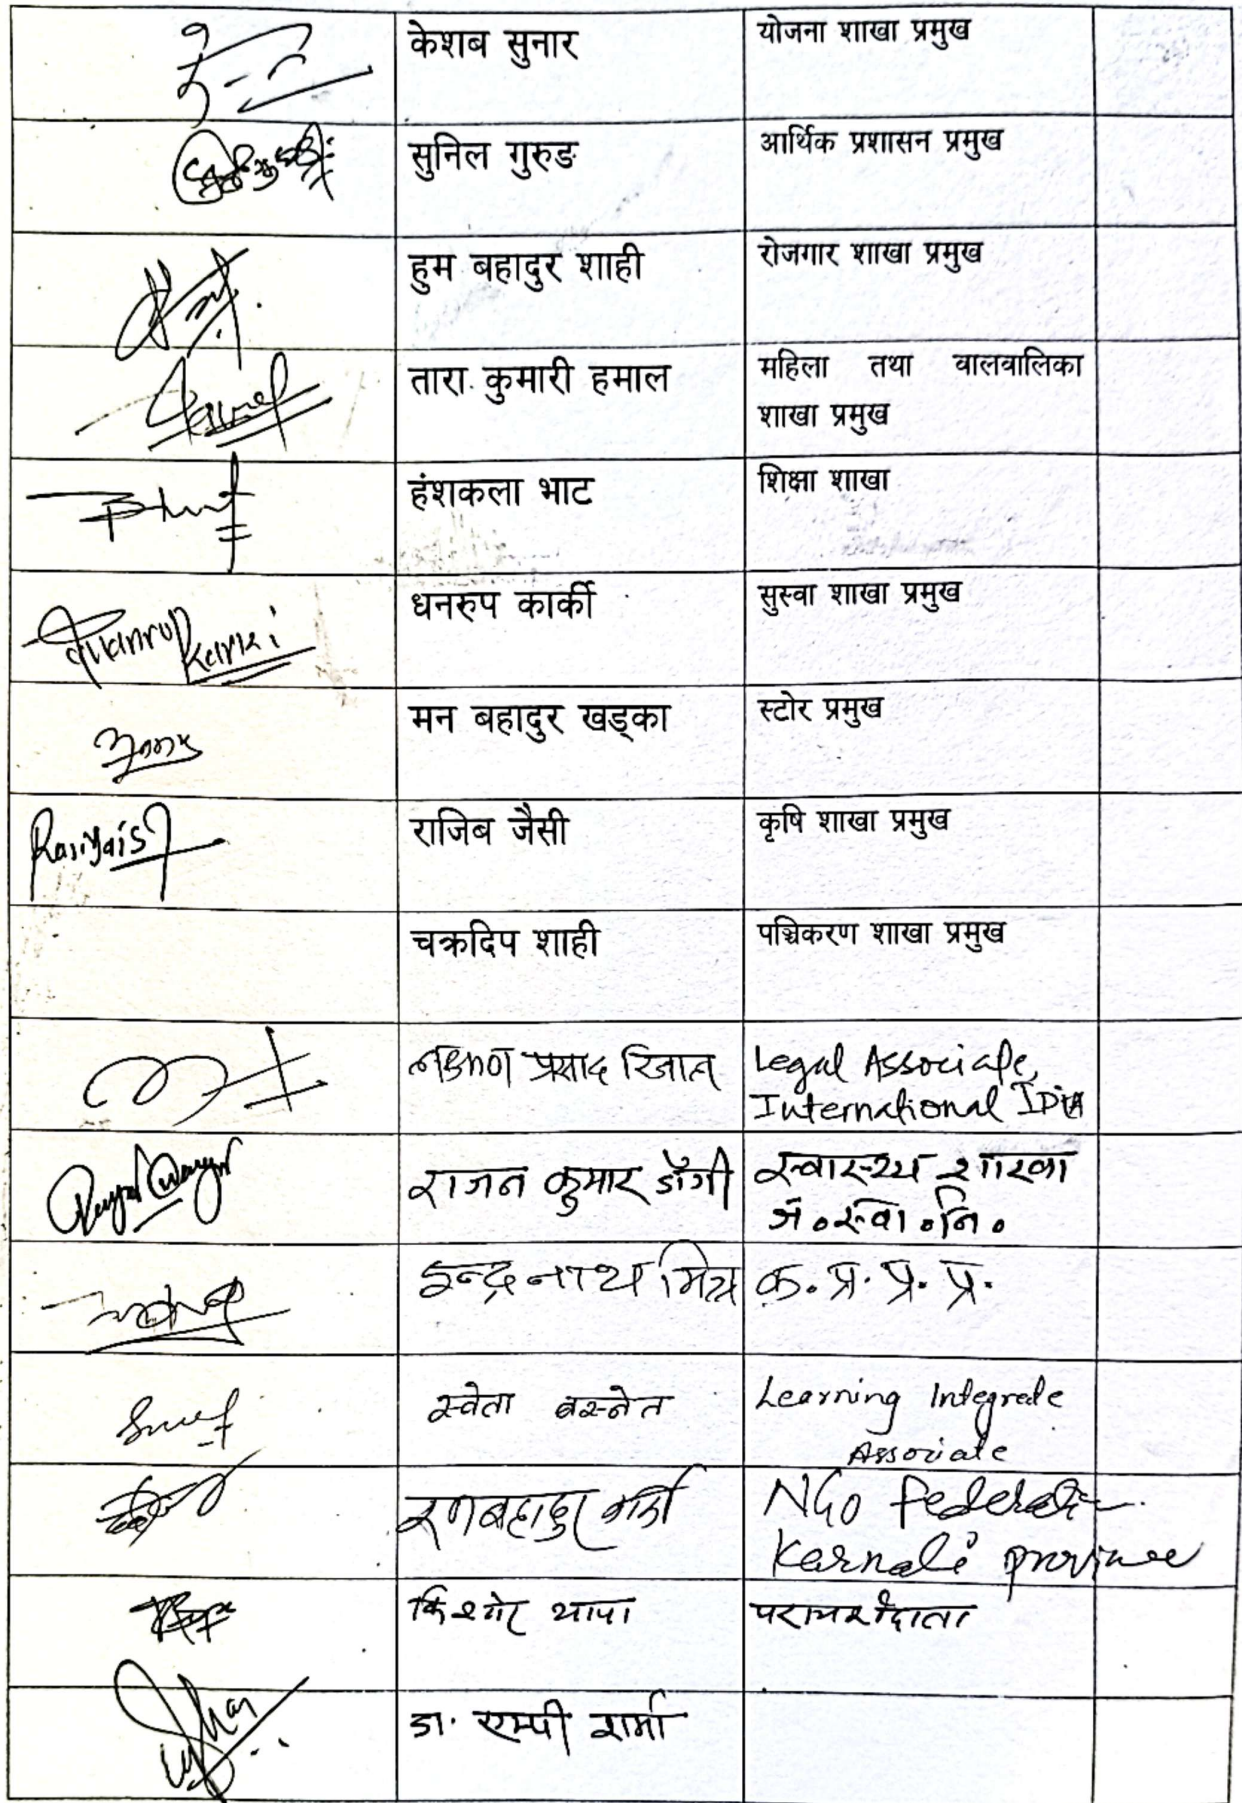 केशब सुनार योजना शाखा प्रमुख
सुनिल गुरुङ आर्थिक प्रशासन प्रमुख
हुम बहादुर शाही रोजगार शाखा प्रमुख
तारा कुमारी हमाल महिला तथा वालवालिका
शाखा प्रमुख
हंशकला भाट शिक्षा शाखा
धनरुप कार्की सुस्वा शाखा प्रमुख
Karki
मन बहादुर खड्का स्टोर प्रमुख
राजिब जैसी कृषि शाखा प्रमुख
चक्रदिप शाही पञ्जिकरण शाखा प्रमुख
प्रसाद रिजाल Legal Associate,
International IDEA
राजन कुमार डाँगी स्वास्थ्य शाखा
ज.स्वा.नि.
इन्द्र नाथ मिश्र क. प्र. प्र. प्र.
स्वेता बस्नेत Learning Integrate
Associate
रणबहादुर NGO Federation
Karnali province
किशोर थापा परामर्शदाता
डा. एम्पी शर्मा